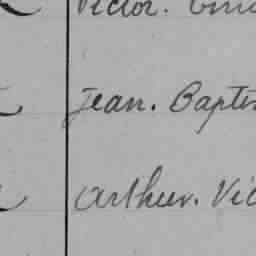 Victor.
Jean. Baptis
Arthur. Vic